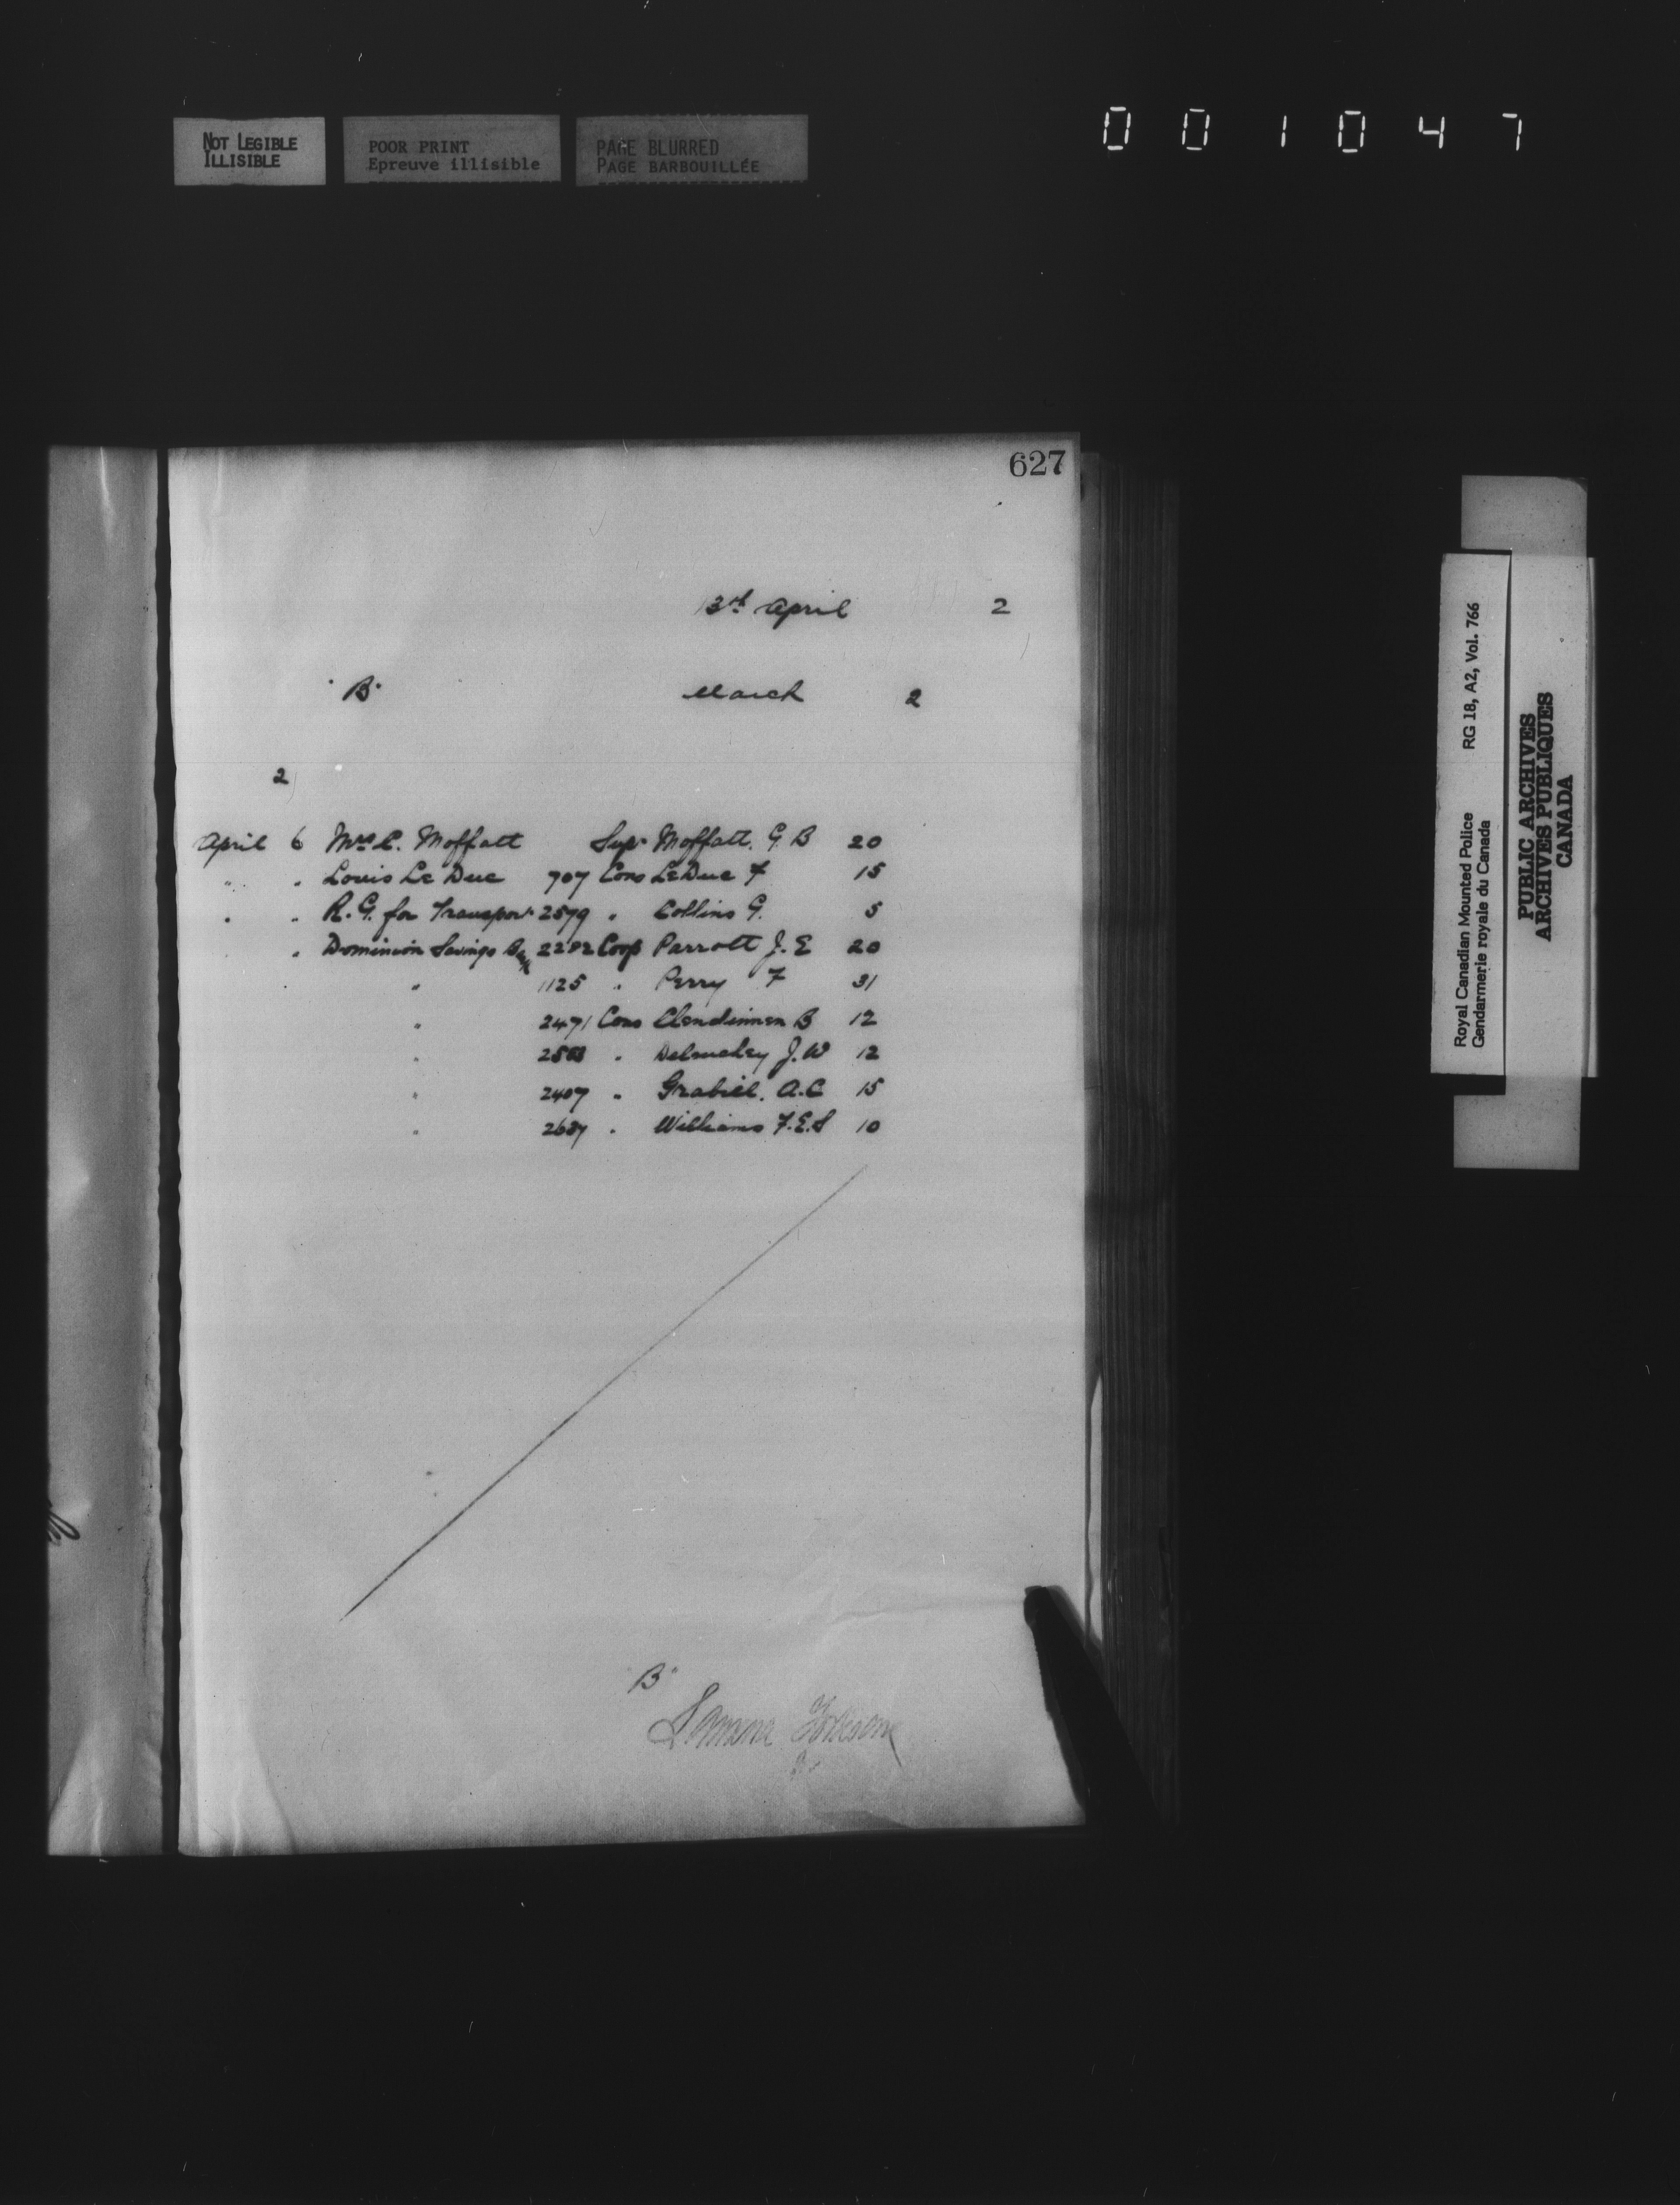 NOT LEGIBLE
ILLISIBLE
POOR PRINT
Epreuve illisible
PAGE BLURRED
PAGE BARBOUILLÉE
001047
627
April 2
"B" March 2
2
April 6 Mrs C. Moffatt Sup. Moffatt. G. B 20
" " Louis Le Duc 707 Cons LeDuc F 15
" " R.G. for Transport 2579 " Collins G. 5
" " Dominion Savings Bank 2282 Corp Parrott J. E 20
" 1125 " Perry F 31
" 2471 Cons Clendinnen B 12
" " J. W 12
" 2407 " Grabill. A. C 15
" " Williams F. E. S 10
"B"
Royal Canadian Mounted Police RG 18, A2, Vol. 766
Gendarmerie royale du Canada
PUBLIC ARCHIVES
ARCHIVES PUBLIQUES
CANADA